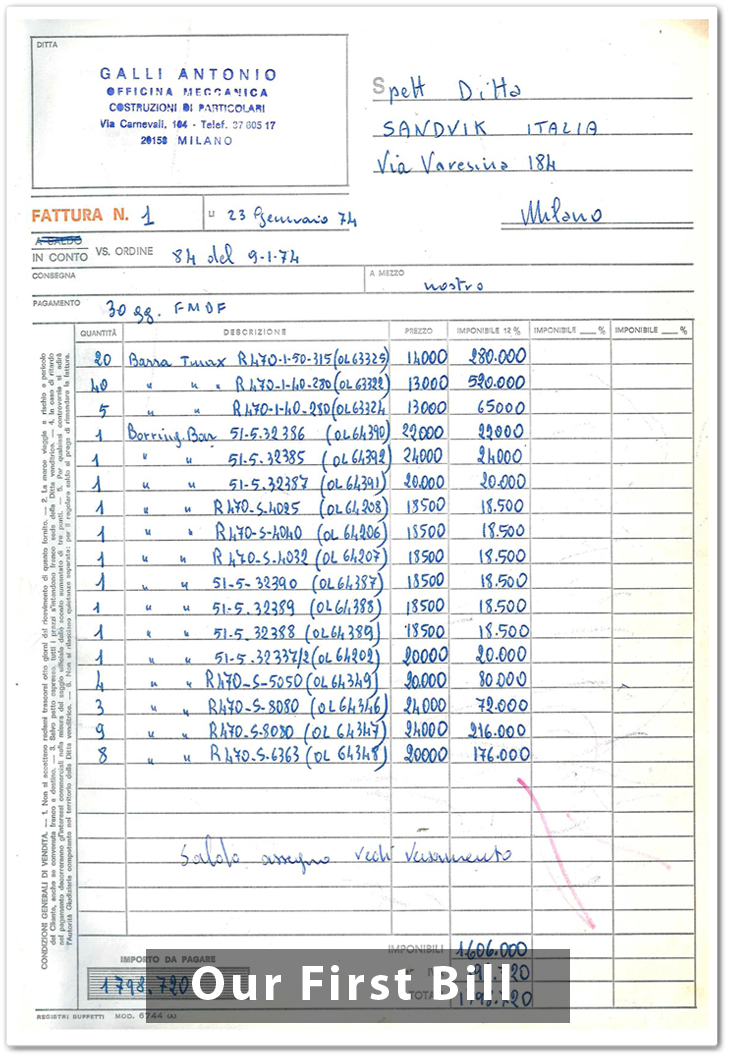 DITTA
GALLI ANTONIO
OFFICINA MECCANICA
COSTRUZIONI DI PARTICOLARI
Via Carnevali, 104 - Telef. 37 605 17
20158 MILANO
Spett Ditta
SANDVIK ITALIA
Via Varesina 184
Milano
FATTURA N. 1
li 23 Gennaio 74
A SALDO
IN CONTO VS. ORDINE 84 del 9-1-74
CONSEGNA A MEZZO nostro
PAGAMENTO 30 gg. FMDF
QUANTITÀ DESCRIZIONE PREZZO IMPONIBILE 12% IMPONIBILE ___% IMPONIBILE ___%
20 Barra Tmax R470-1-50-315 (OL63325) 14000 280.000
40 " " " R470-1-40-280 (OL63322) 13000 520.000
5 " " R470-1-40-280 (OL63324 13000 65000
1 Borring.Bar 51-5.32386 (OL64390) 22000 22000
1 " " 51-5.32385 (OL64392) 24000 24000
1 " " 51-5.32387 (OL64391) 20.000 20.000
1 " " R470-S-4025 (OL64208) 18500 18.500
1 " " R470-S-4040 (OL64206) 18500 18.500
1 " " R470-S-4032 (OL64207) 18500 18.500
1 " " 51-5-32390 (OL64387) 18500 18.500
1 " " 51-5.32389 (OL64388) 18500 18.500
1 " " 51-5.32388 (OL64389) 18500 18.500
1 " " 51-5.32337/2 (OL64202) 20000 20.000
4 " " R470-S-5050 (OL64349) 20.000 80.000
3 " " R470-S-8080 (OL64346) 24000 72.000
9 " " R470-S-8080 (OL64347) 24000 216.000
8 " " R470-S.6363 (OL64348) 20000 176.000
Saldo assegno vedi versamento
IMPONIBILI 1.606.000
IMPORTO DA PAGARE
1798.720
1798.720
Our First Bill
REGISTRI BUFFETTI MOD. 6744 (A)
CONDIZIONI GENERALI DI VENDITA. — 1. Non si accettano reclami trascorsi otto giorni dal ricevimento di quanto fornito. — 2. La merce viaggia a rischio e pericolo
del Cliente, anche se convenuta franco a destino. — 3. Salvo patto espresso, tutti i prezzi s'intendono franco sede della Ditta venditrice. — 4. In caso di ritardo
nel pagamento decorreranno gl'interessi commerciali nella misura del saggio ufficiale dello sconto aumentato di tre punti. — 5. Per qualsiasi controversia si adirà
l'Autorità Giudiziaria competente nel territorio della Ditta venditrice. — 6. Non si rilasciano quietanze separate: per il regolare saldo si prega di rimandare la fattura.